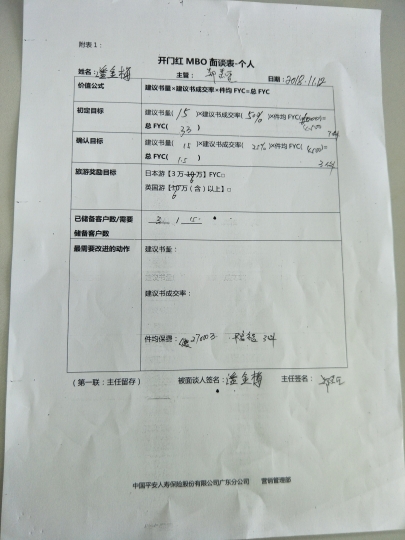 附表1：
开门红 MBO 面谈表-个人
姓名： 主管： 日期：2018.11.12
价值公式 建议书量×建议书成交率×件均 FYC=总 FYC
初定目标 建议书量( 15 )×建议书成交率( 50% )×件均 FYC( )=
总 FYC( 33 )
确认目标 建议书量( 15 )×建议书成交率( 25% )×件均 FYC( )=
总 FYC( 1.5 )
旅游奖励目标 日本游【3 万- 万】FYC□
6
英国游【 万（含）以上】□
6
已储备客户数/需要 3 1 15
储备客户数
最需要改进的动作 建议书量：
建议书成交率：
件均保费： 27000
（第一联：主任留存） 被面谈人签名： 主任签名：
中国平安人寿保险股份有限公司广东分公司 营销管理部